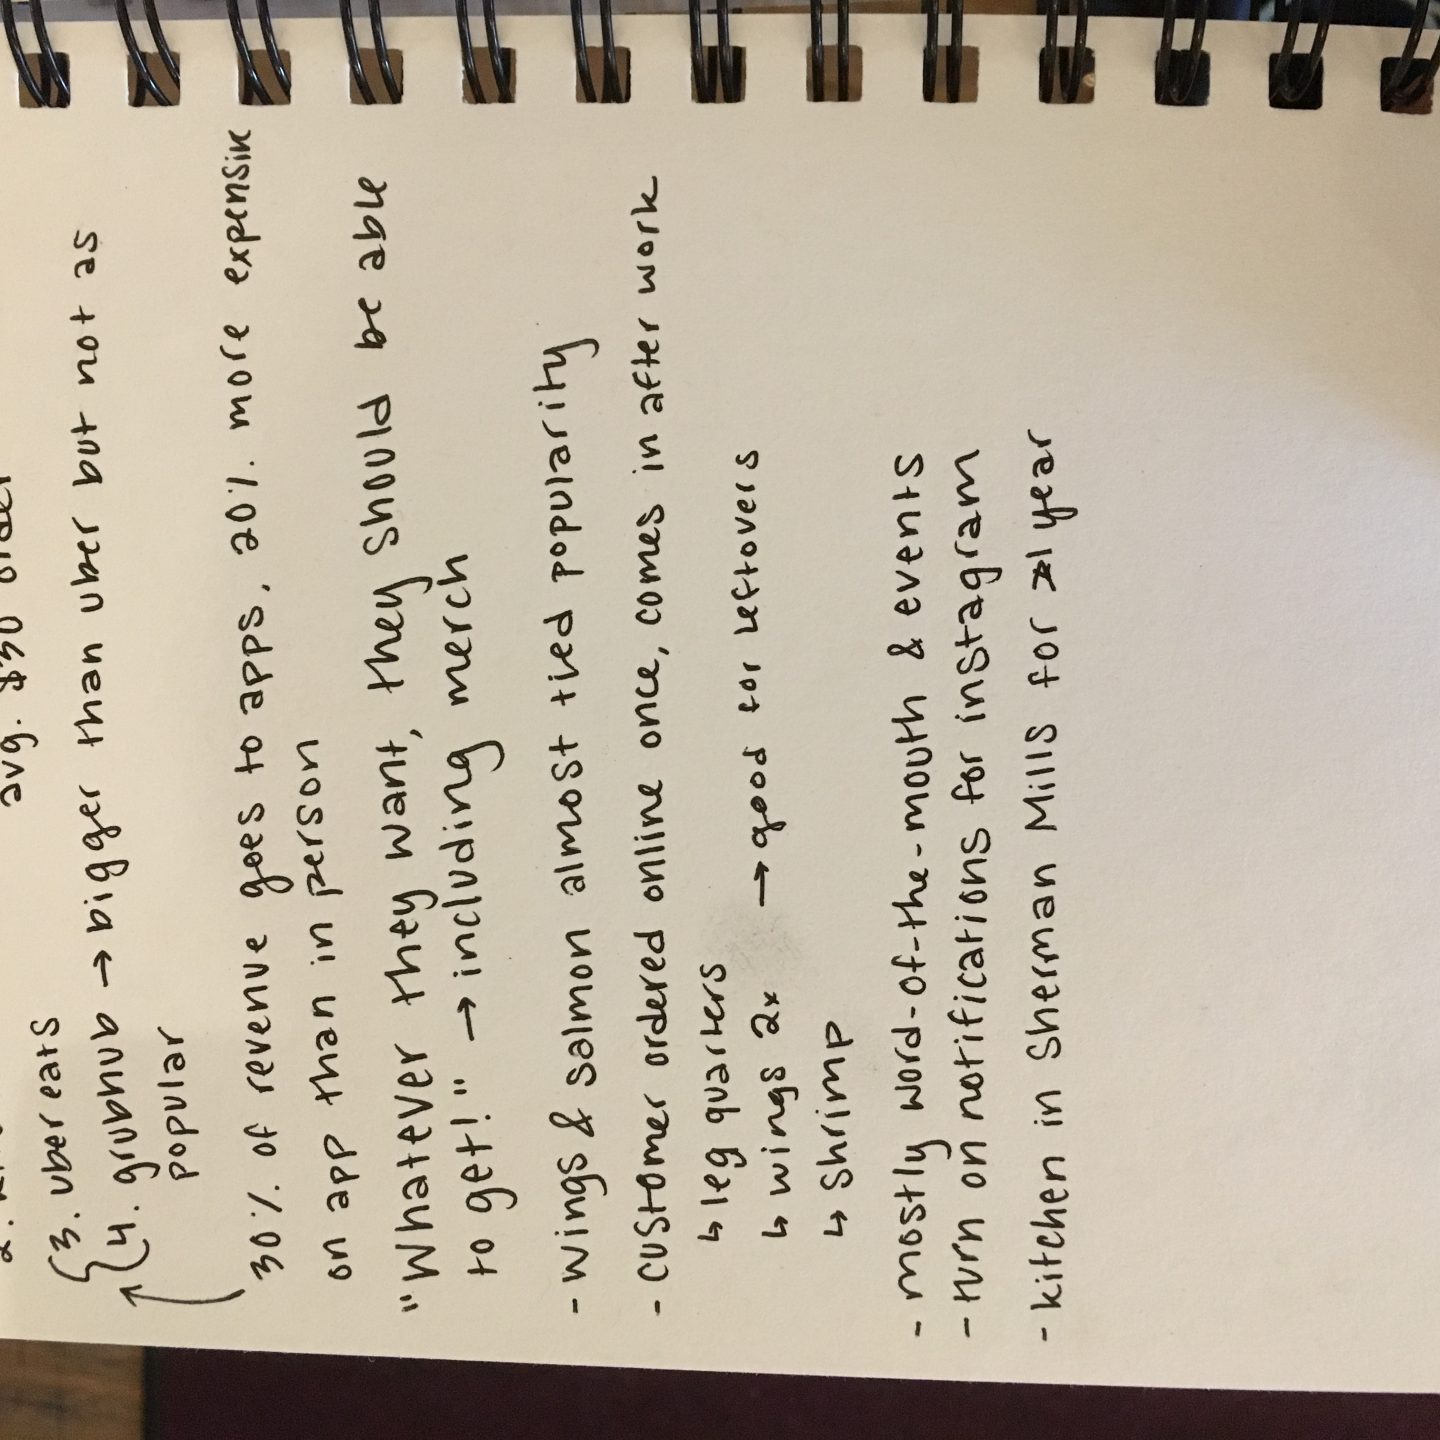 avg. $30 order
2.
3. uber eats
4. grubhub → bigger than uber but not as
popular
30% of revenue goes to apps, 20% more expensive
on app than in person
"Whatever they want, they should be able
to get!" → including merch
- Wings & salmon almost tied popularity
- customer ordered online once, comes in after work
↳ leg quarters
↳ wings 2x → good for leftovers
↳ shrimp
- mostly word-of-the-mouth & events
- turn on notifications for instagram
- kitchen in Sherman Mills for 1 year